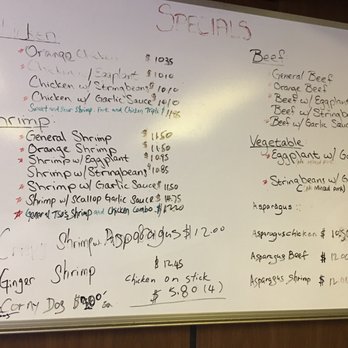 SPECIALS
Chicken
Orange Chicken $ 10.35
Chicken w/ Eggplant $ 10.10
Chicken w/ Stringbeans $ 10.10
Chicken w/ Garlic Sauce $ 10.10
Sweet and Sour Shrimp, Pork and Chicken Triple $
Shrimp
General Shrimp $ 11.50
Orange Shrimp $ 11.50
Shrimp w/ Eggplant $ 10.95
Shrimp w/ Stringbeans $ 10.85
Shrimp w/ Garlic Sauce $ 11.50
Shrimp w/ Scallop Garlic Sauce $
General Tso's Shrimp and Chicken Combo $
Shrimp w. Asparagus $ 12.00
Ginger Shrimp $ 12.45
Chicken on stick
$ 5.80 (4)
Corny Dog
Beef
General Beef
Orange Beef
Beef w/ Eggplant
Beef w/ Stringbeans
Beef w/ Garlic Sauce
Vegetable
Eggplant w/ G
Stringbeans w/ G
Asparagus
Asparagus chicken $
Asparagus Beef $ 12.0
Asparagus Shrimp $ 12.